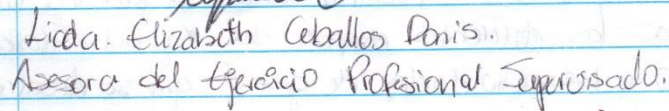 Licda. Elizabeth Ceballos Donis.
Asesora del Ejercicio Profesional Supervisado.